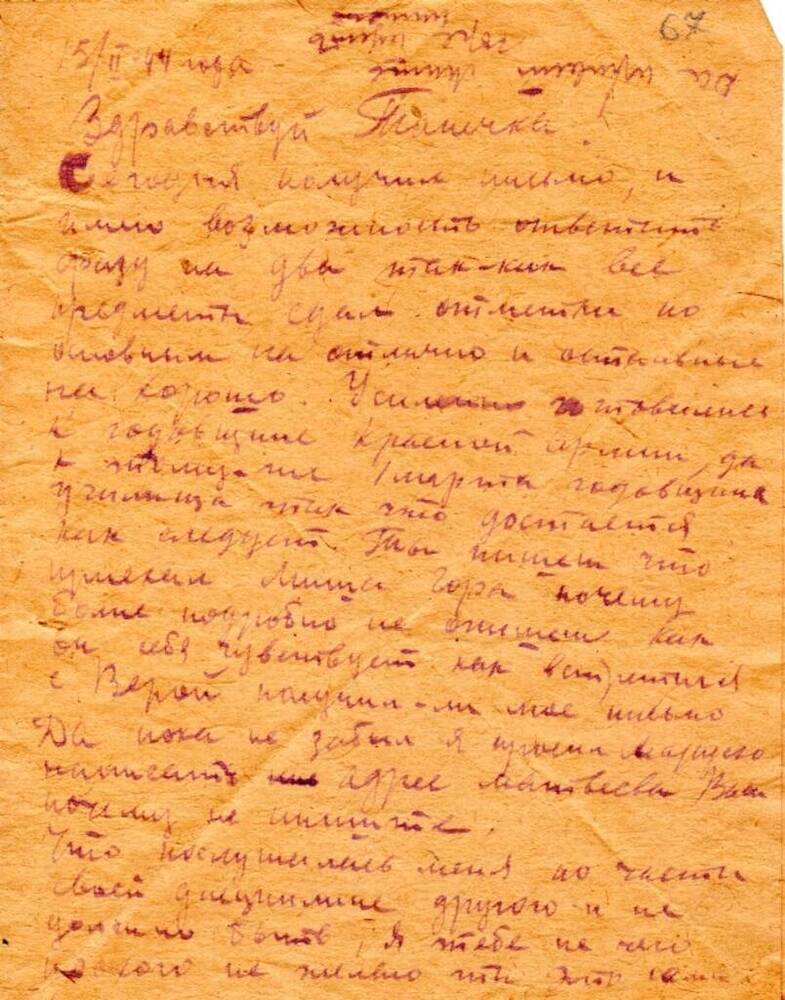 67
15/II-44 года
Здравствуй Танечка!
Сегодня получил письмо, и
имею возможность ответить
сразу на два так-как все
предметы сдал отметки по
основным на отлично и остальные
на хорошо. Усиленно готовились
к годовщине красной армии, да
к тому-же 1 марта годовщина
училища так что достается
как следует Ты пишеш что
приехал Миша Гора почему
более подробно не опишеш как
он себя чувствует как встретился
с Верой получил-ли мое письмо
Да пока не забыл я просил Марусю
написать адрес Матвеева Васи
почему не пишите.
Что послушалась меня по части
своей дисциплине другого и не
должно быть, я тебе не чего
плохого не желаю